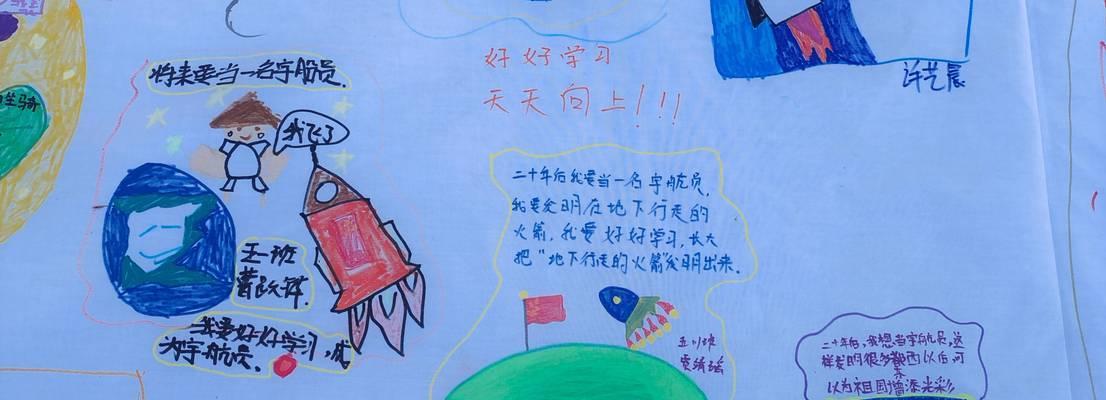 将来要当一名宇航员.
我飞了
五一班
我要好好学习,成
为宇航员.
好好学习
天天向上!!!
二十年后我要当一名宇航员,
我要发明在地下行走的
火箭,我要好好学习,长大
把"地下行走的火箭"发明出来.
五川班
许艺晨
二十年后,我想当宇航员,这
样发明很多东西以后可
以为祖国增添光彩